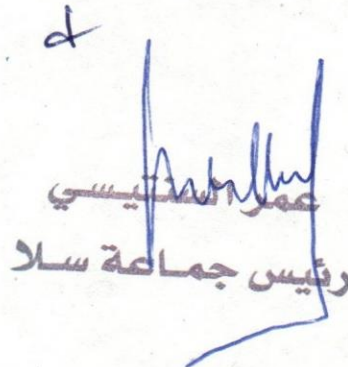 عمر السنتيسي
رئيس جماعة سلا